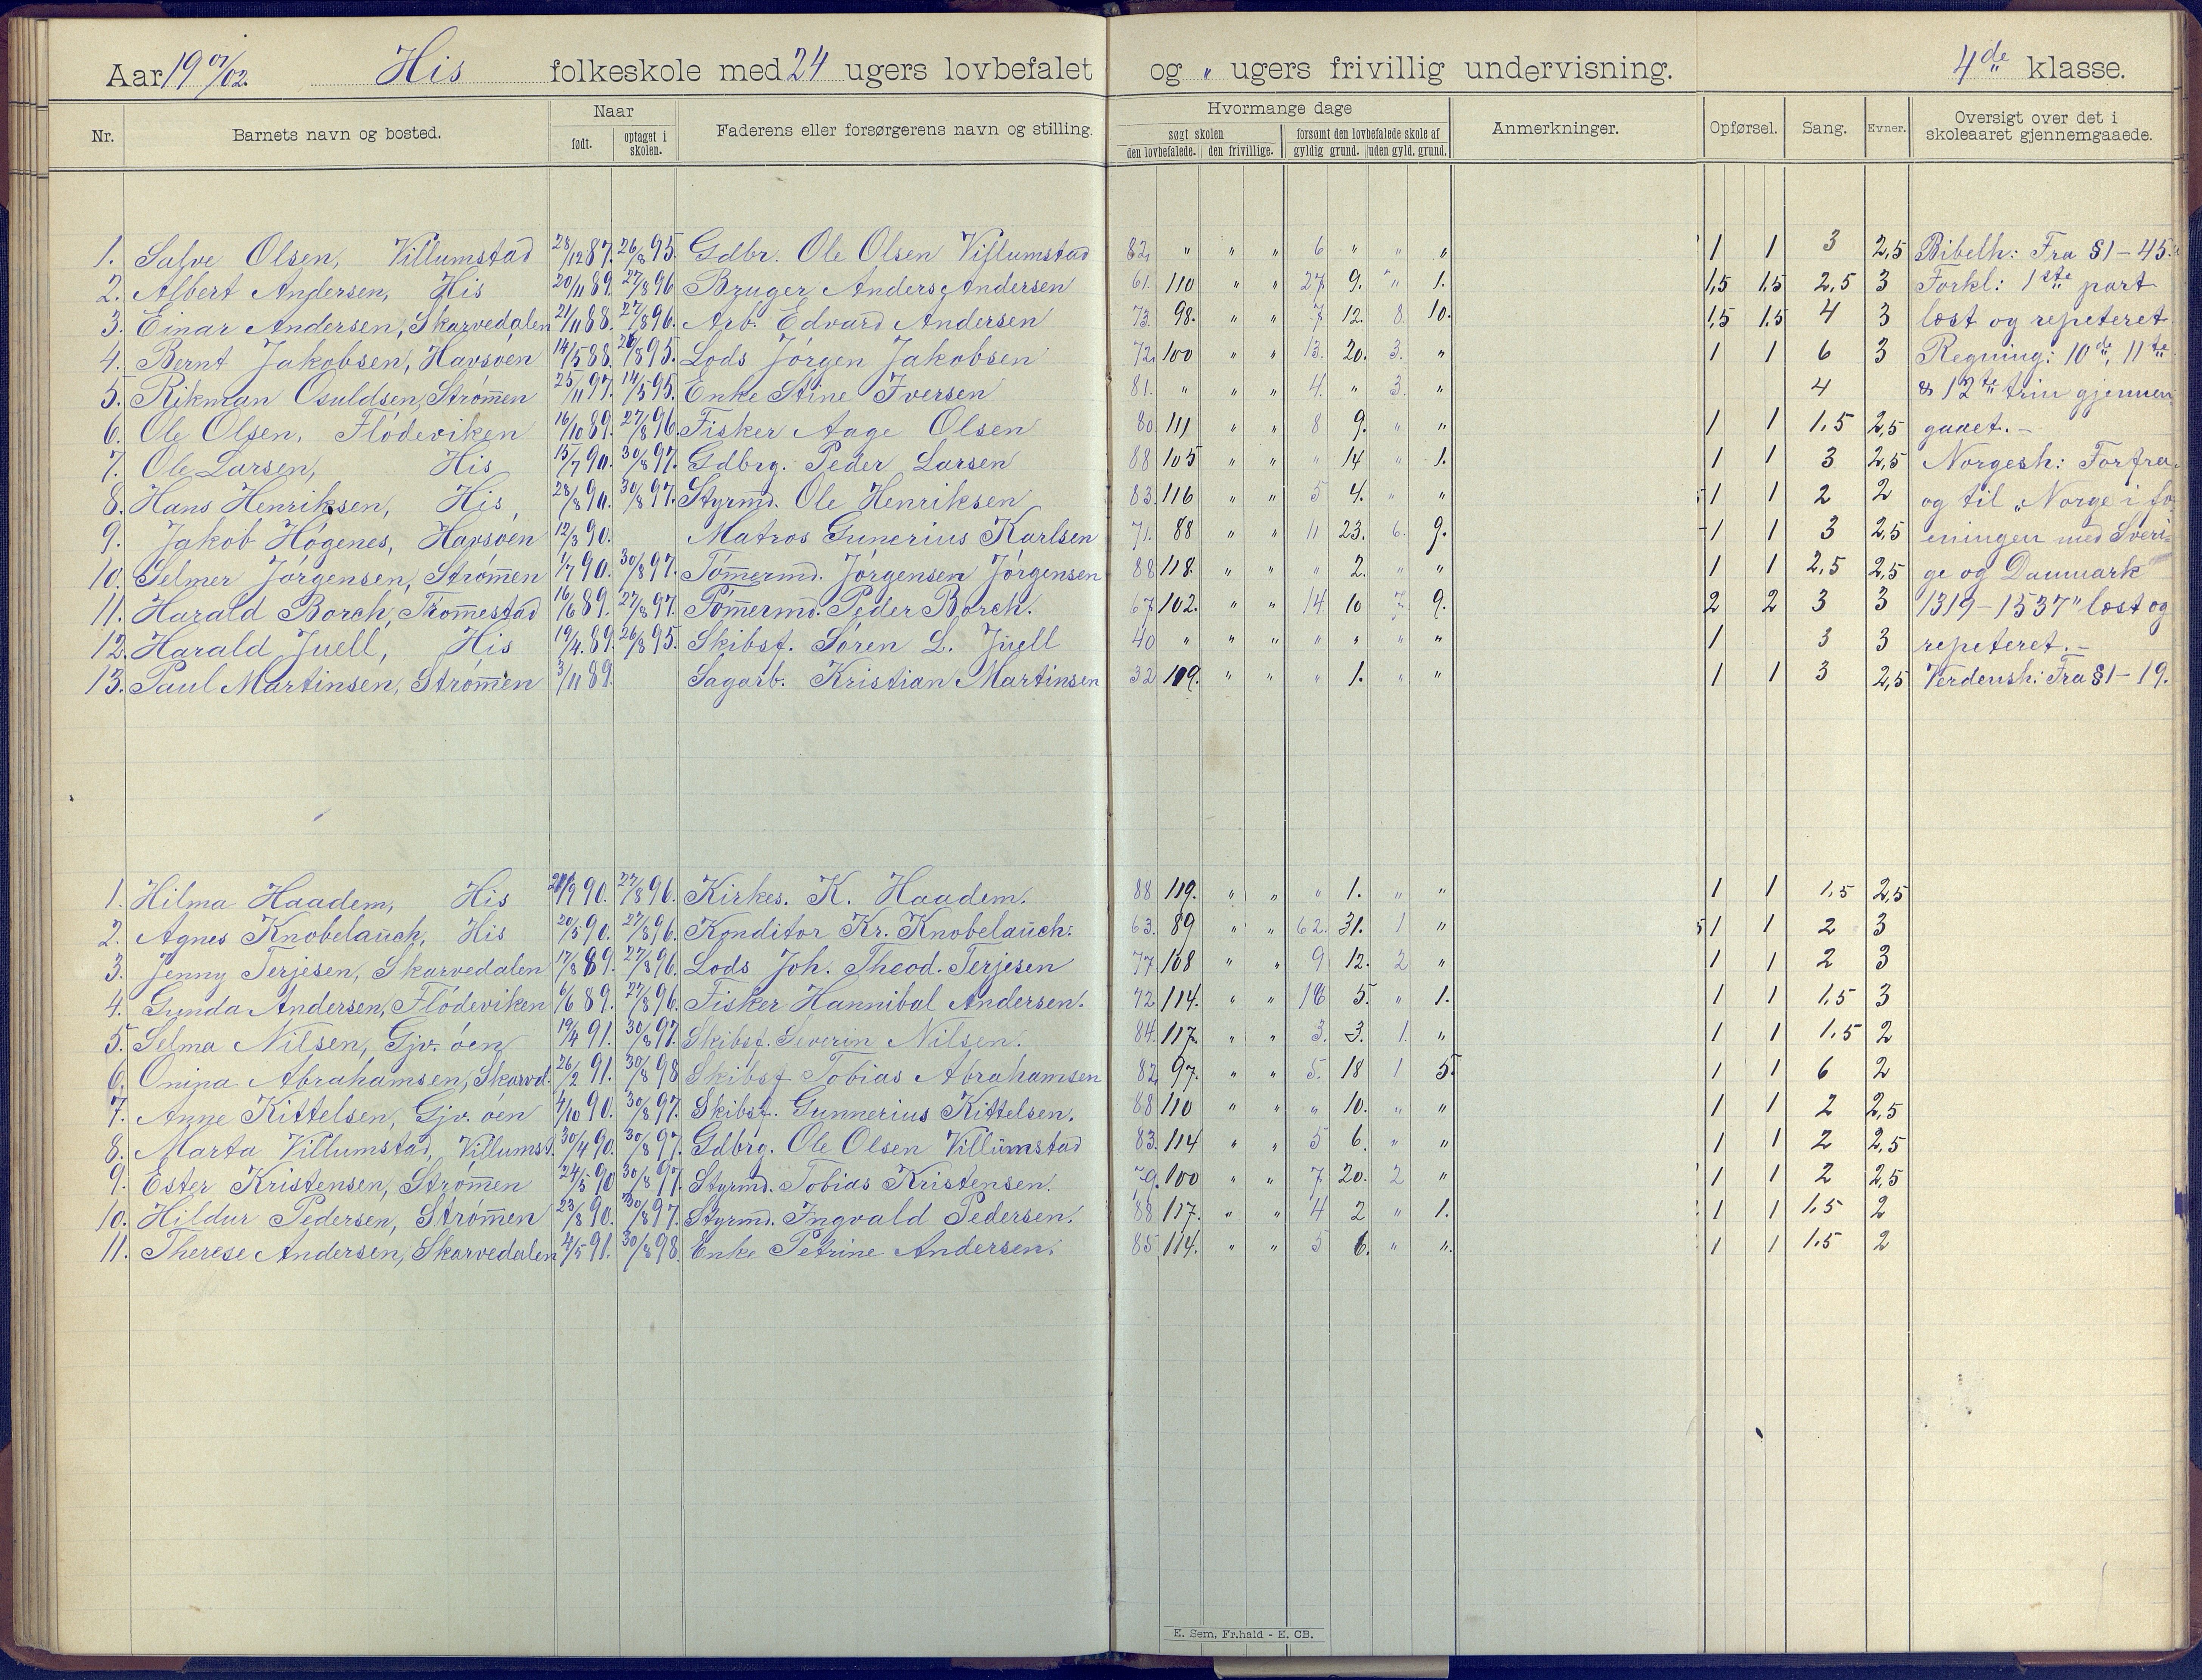 Aar 19 01/02. His folkeskole med 24 ugers lovbefalet og " ugers frivillig undervisning. 4de klasse.
Nr. Barnets navn og bosted. Naar født. optaget i skolen. Faderens eller forsørgerens navn og stilling. Hvormange dage søgt skolen den lovbefalede. den frivillige. forsømt den lovbefalede skole af gyldig grund. uden gyld. grund. Anmerkninger. Opførsel. Sang. Evner. Oversigt over det i skoleaaret gjennemgaaede.
1. Salve Olsen, Villumstad 28/12 87. 26/8 95. Gdbr. Ole Olsen Villumstad 82. " " " 6 " " " 1 1 3 2,5 Bibelh: Fra §1-45.
2. Albert Andersen, His 20/11 89. 27/8 96 Bruger Anders Andersen 61. 110 " " 27. 9. " 1. 1,5 1,5 2,5 3 Forkl: 1ste part
3. Einar Andersen, Skarvedalen 21/11 88. 27/8 96. Arb. Edvard Andersen 73. 98. " " 7 12. 8. 10. 1,5 1,5 4 3 læst og repeteret
4. Bernt Jakobsen, Havsøen 14/5 88. 26/8 95. Lods Jørgen Jakobsen 72. 100 " " 13. 20. 3. " 1 1 6 3 Regning: 10de, 11te
5. Rikman Osuldsen, Strømen 25/11 97. 14/5 95. Enke Stine Iversen 81. " " " 4. " 3. " 4 & 12te trin gjennem
6. Ole Olsen, Flødeviken 16/10 89. 27/8 96. Fisker Aage Olsen 80 111 " " 8 9. " " 1 1 1,5 2,5 gaaet.-
7. Ole Larsen, His 15/7 90. 30/8 97. Gdbrg. Peder Larsen 88 105 " " " 14 " 1. 1 1 3 2,5 Norgesh: Forfra
8. Hans Henriksen, His, 28/8 90. 30/8 97. Styrmd. Ole Henriksen 83. 116 " " 5 4. " " 1 1 2 2 og til "Norge i fo
9. Jakob Høgenes, Havsøen 12/3 90. Matros Gunerius Karlsen 71. 88 " " 11 23. 6. 9. 1 1 3 2,5 eningen med Sveri=
10. Selmer Jørgensen, Strømen 1/7 90. 30/8 97. Tømermd. Jørgensen Jørgensen 88 118. " " " 2. " " 1 1 2,5 2,5 ge og Danmark
11. Harald Borch, Tromestad 16/6 89. 27/8 97. Tømermd. Peder Borch. 67 102. " " 14. 10 7. 9. 2 2 3 3 1319-1537" læst og
12. Harald Juell, His 19/4 89. 26/8 95. Skibsf. Søren L. Juell 40 " " " " " " " 1 3 3 repeteret.-
13. Paul Martinsen, Strømen 3/11 89. Sagarb. Kristian Martinsen 32 119. " " " 1. " " 1 1 3 2,5 Verdensh: Fra §1-19.
1. Hilma Haadem, His 90. 27/8 96. Kirkes. K. Haadem. 88 119. " " " 1. " " 1 1 1,5 2,5
2. Agnes Knobelauch, His 20/5 90. 27/8 96. Konditor Kr. Knobelauch. 63. 89 " " 62. 31. 1 " 1 1 2 3
3. Jenny Terjesen, Skarvedalen 17/8 89. 27/8 96. Lods Joh. Theod. Terjesen 77 108 " " 9 12. 2 " 1 1 2 3
4. Gunda Andersen, Flødeviken 6/6 89. 27/8 96. Fisker Hannibal Andersen. 72 114. " " 16 5. " 1. 1 1 1,5 3
5. Selma Nilsen, Gjv. øen 19/4 91. 30/8 97. Skibsf. Severin Nilsen. 84. 117. " " 3. 3. 1. " 1 1 1,5 2
6. Onina Abrahamsen, Skarvd. 26/2 91. 30/8 98 Skibsf. Tobias Abrahamsen 82. 97. " " 5. 18 1 5. 1 1 6 2
7. Anne Kittelsen, Gjv. øen 4/10 90. 30/8 97. Skibsf. Gunnerius Kittelsen. 88 110 " " " 10. " " 1 1 2 2,5
8. Marta Villumstad, Villumst. 30/4 90. 30/8 97. Gdbrg. Ole Olsen Villumstad 83. 114 " " 5 6. " " 1 1 2 2,5
9. Ester Kristensen, Strømen 24/5 90 30/8 97. Styrmd. Tobias Kristensen. 79. 100 " " 7 20. 2 " 1 1 2 2,5
10. Hildur Pedersen, Strømen 23/8 90. 30/8 97. Styrmd. Ingvald Pedersen. 88 117. " " 4 2 " 1. 1 1 1,5 2
11. Therese Andersen, Skarvedalen 4/5 91. 30/8 98. Enke Petrine Andersen. 85. 114. " " 5 6. " ". 1 1 1,5 2
E. Sem, Fr.hald - E. CB.